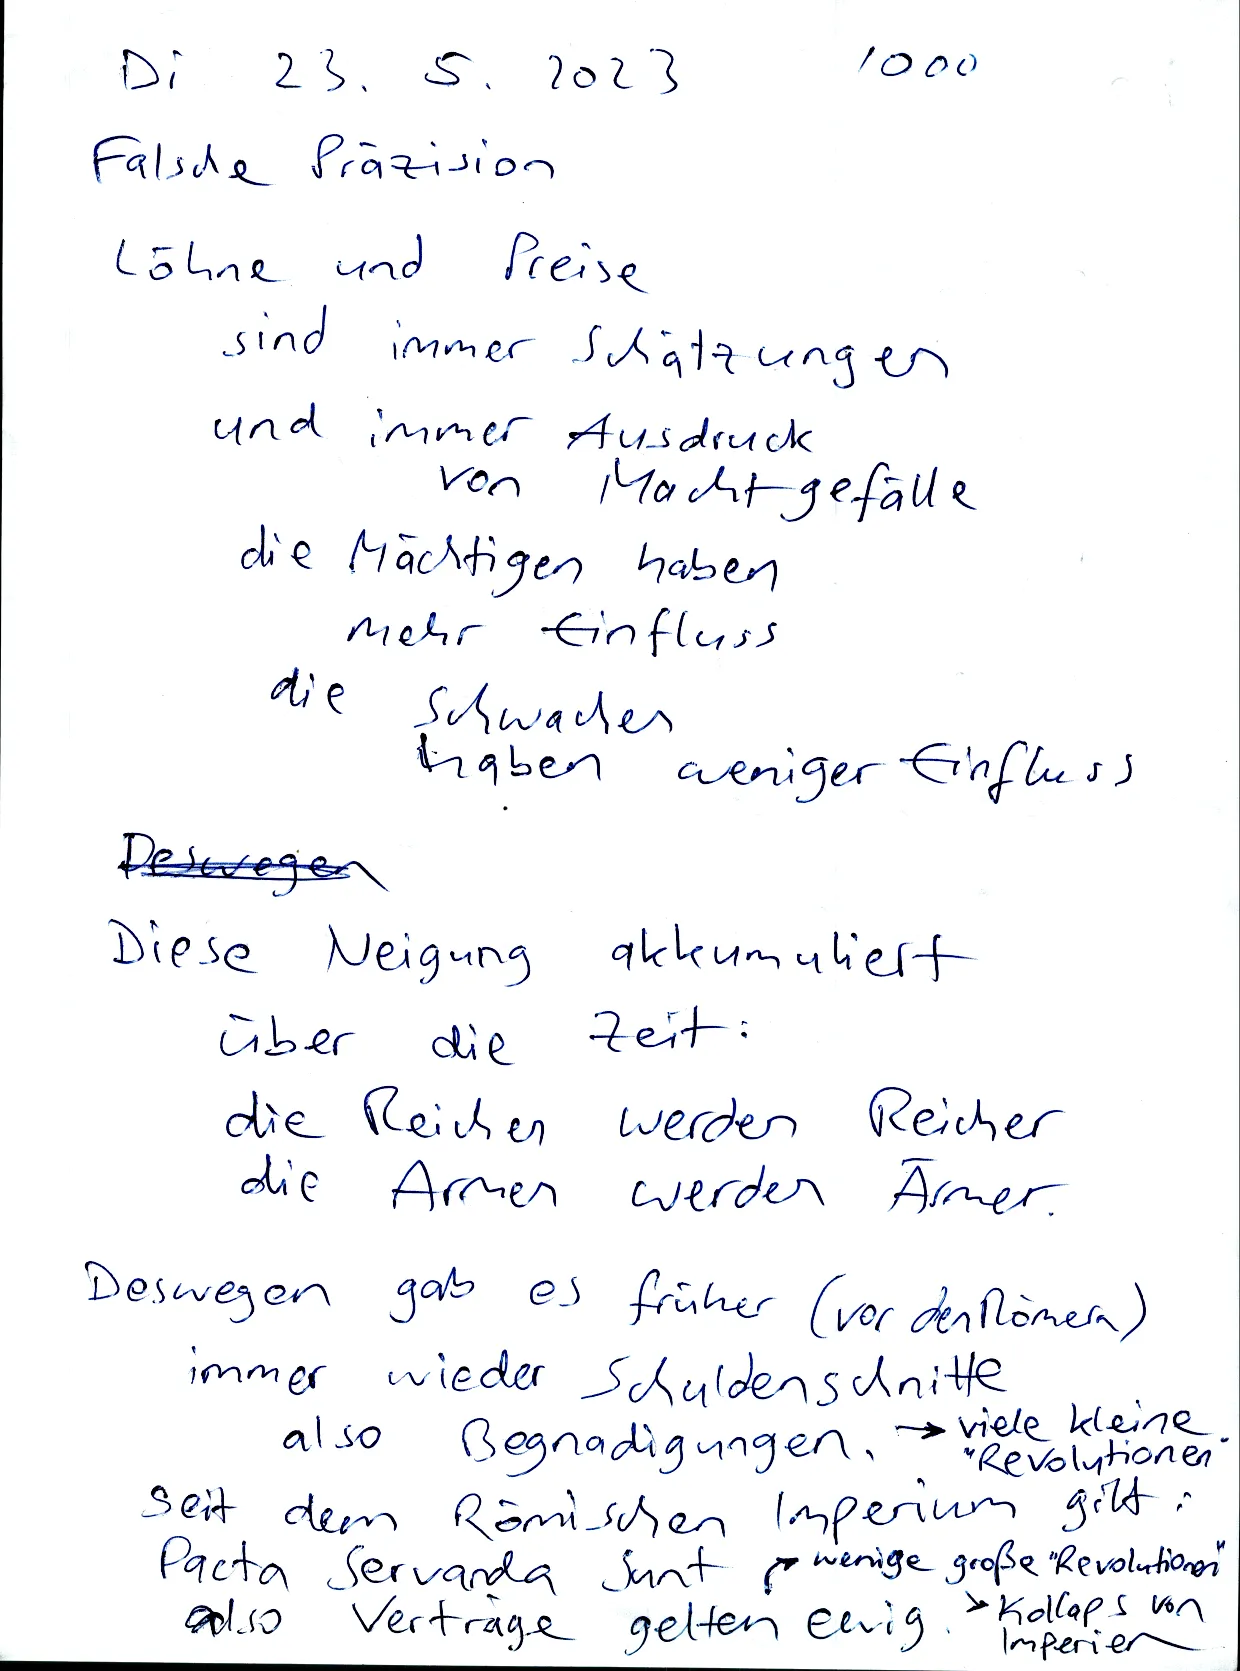 Di 23. 5. 2023 1000
Falsche Präzision
Löhne und Preise
sind immer Schätzungen
und immer Ausdruck
von Machtgefälle
die Mächtigen haben
mehr Einfluss
die Schwachen
haben weniger Einfluss
Deswegen
Diese Neigung akkumuliert
über die Zeit:
die Reichen werden Reicher
die Armen werden Ärmer.
Deswegen gab es früher (vor den Römern)
immer wieder Schuldenschnitte
also Begnadigungen. → viele kleine
"Revolutionen"
Seit dem Römischen Imperium gilt:
Pacta Servanda Sunt → wenige große "Revolutionen"
also Verträge gelten ewig. → Kollaps von
Imperien